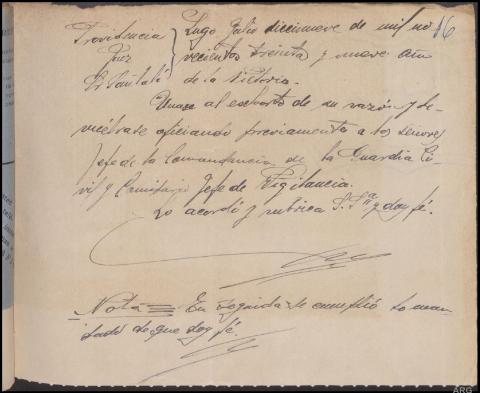 Providencia } Lugo Julio diecinueve de mil no- 16
Juez } vecientos treinta y nueve año
Sr Santaló } de la Victoria.
Unase al exhorto de su razón y de-
vuélvase oficiando previamente a los señores
Jefe de la Comandancia de la Guardia Ci-
vil y Comisario Jefe de Vigilancia.
Lo acordó y rubrica S. Sª y doy fé.
Nota = En seguida se cumplió lo man
dado de que doy fé.
ARG